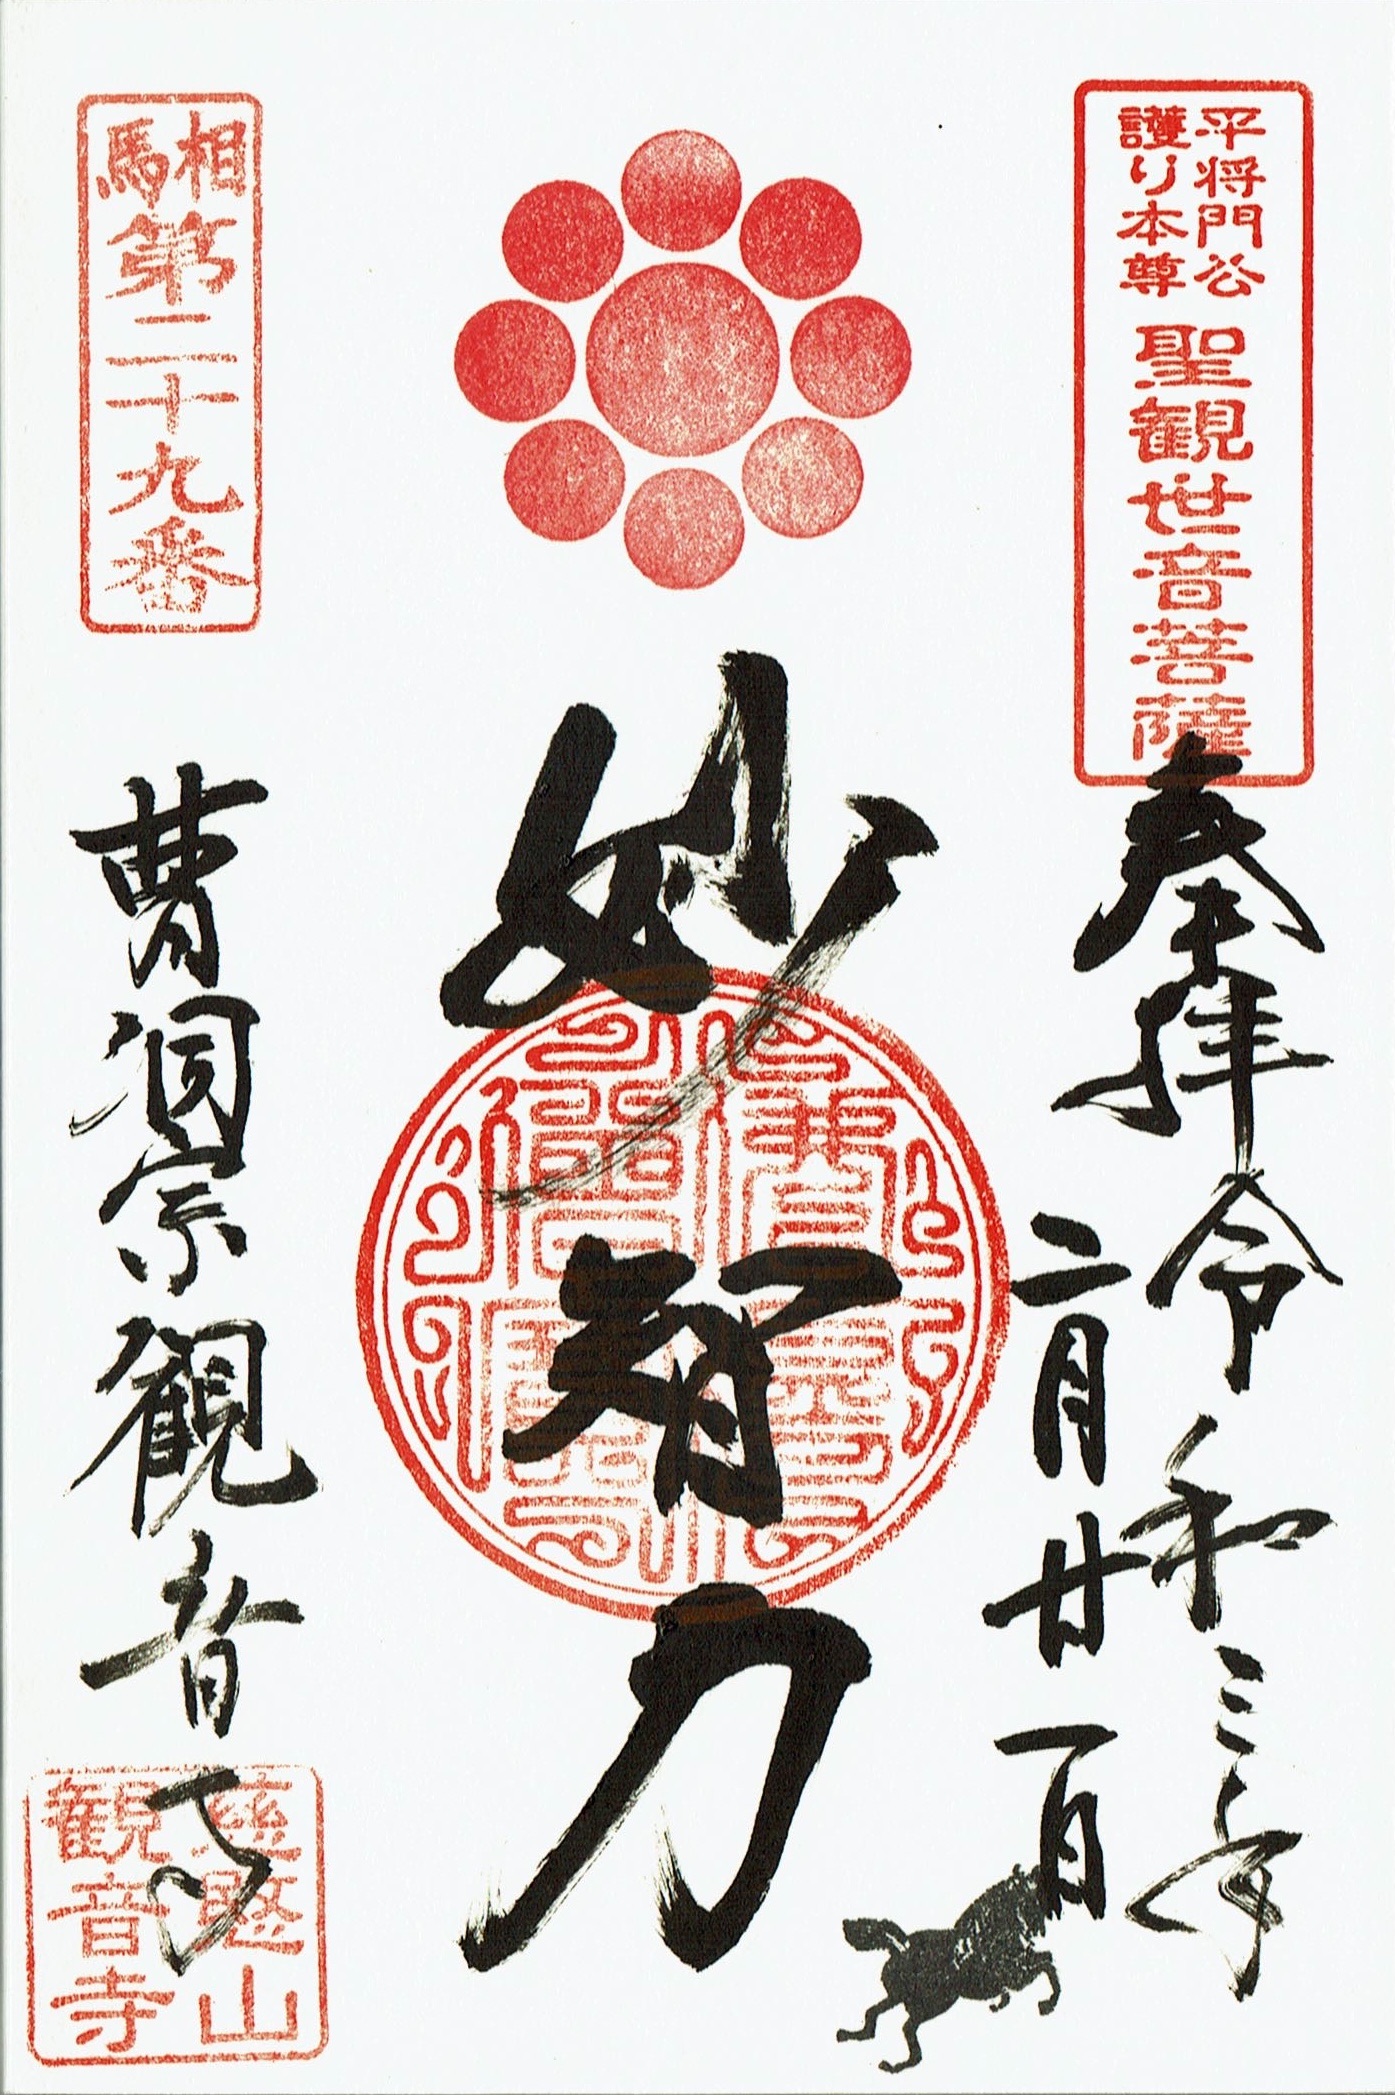 平将門公
護り本尊
聖観世音菩薩
奉拝 令和三年
二月廿一日
妙智力
相馬
第二十九番
曹洞宗 観音寺
慈愍山
観音寺